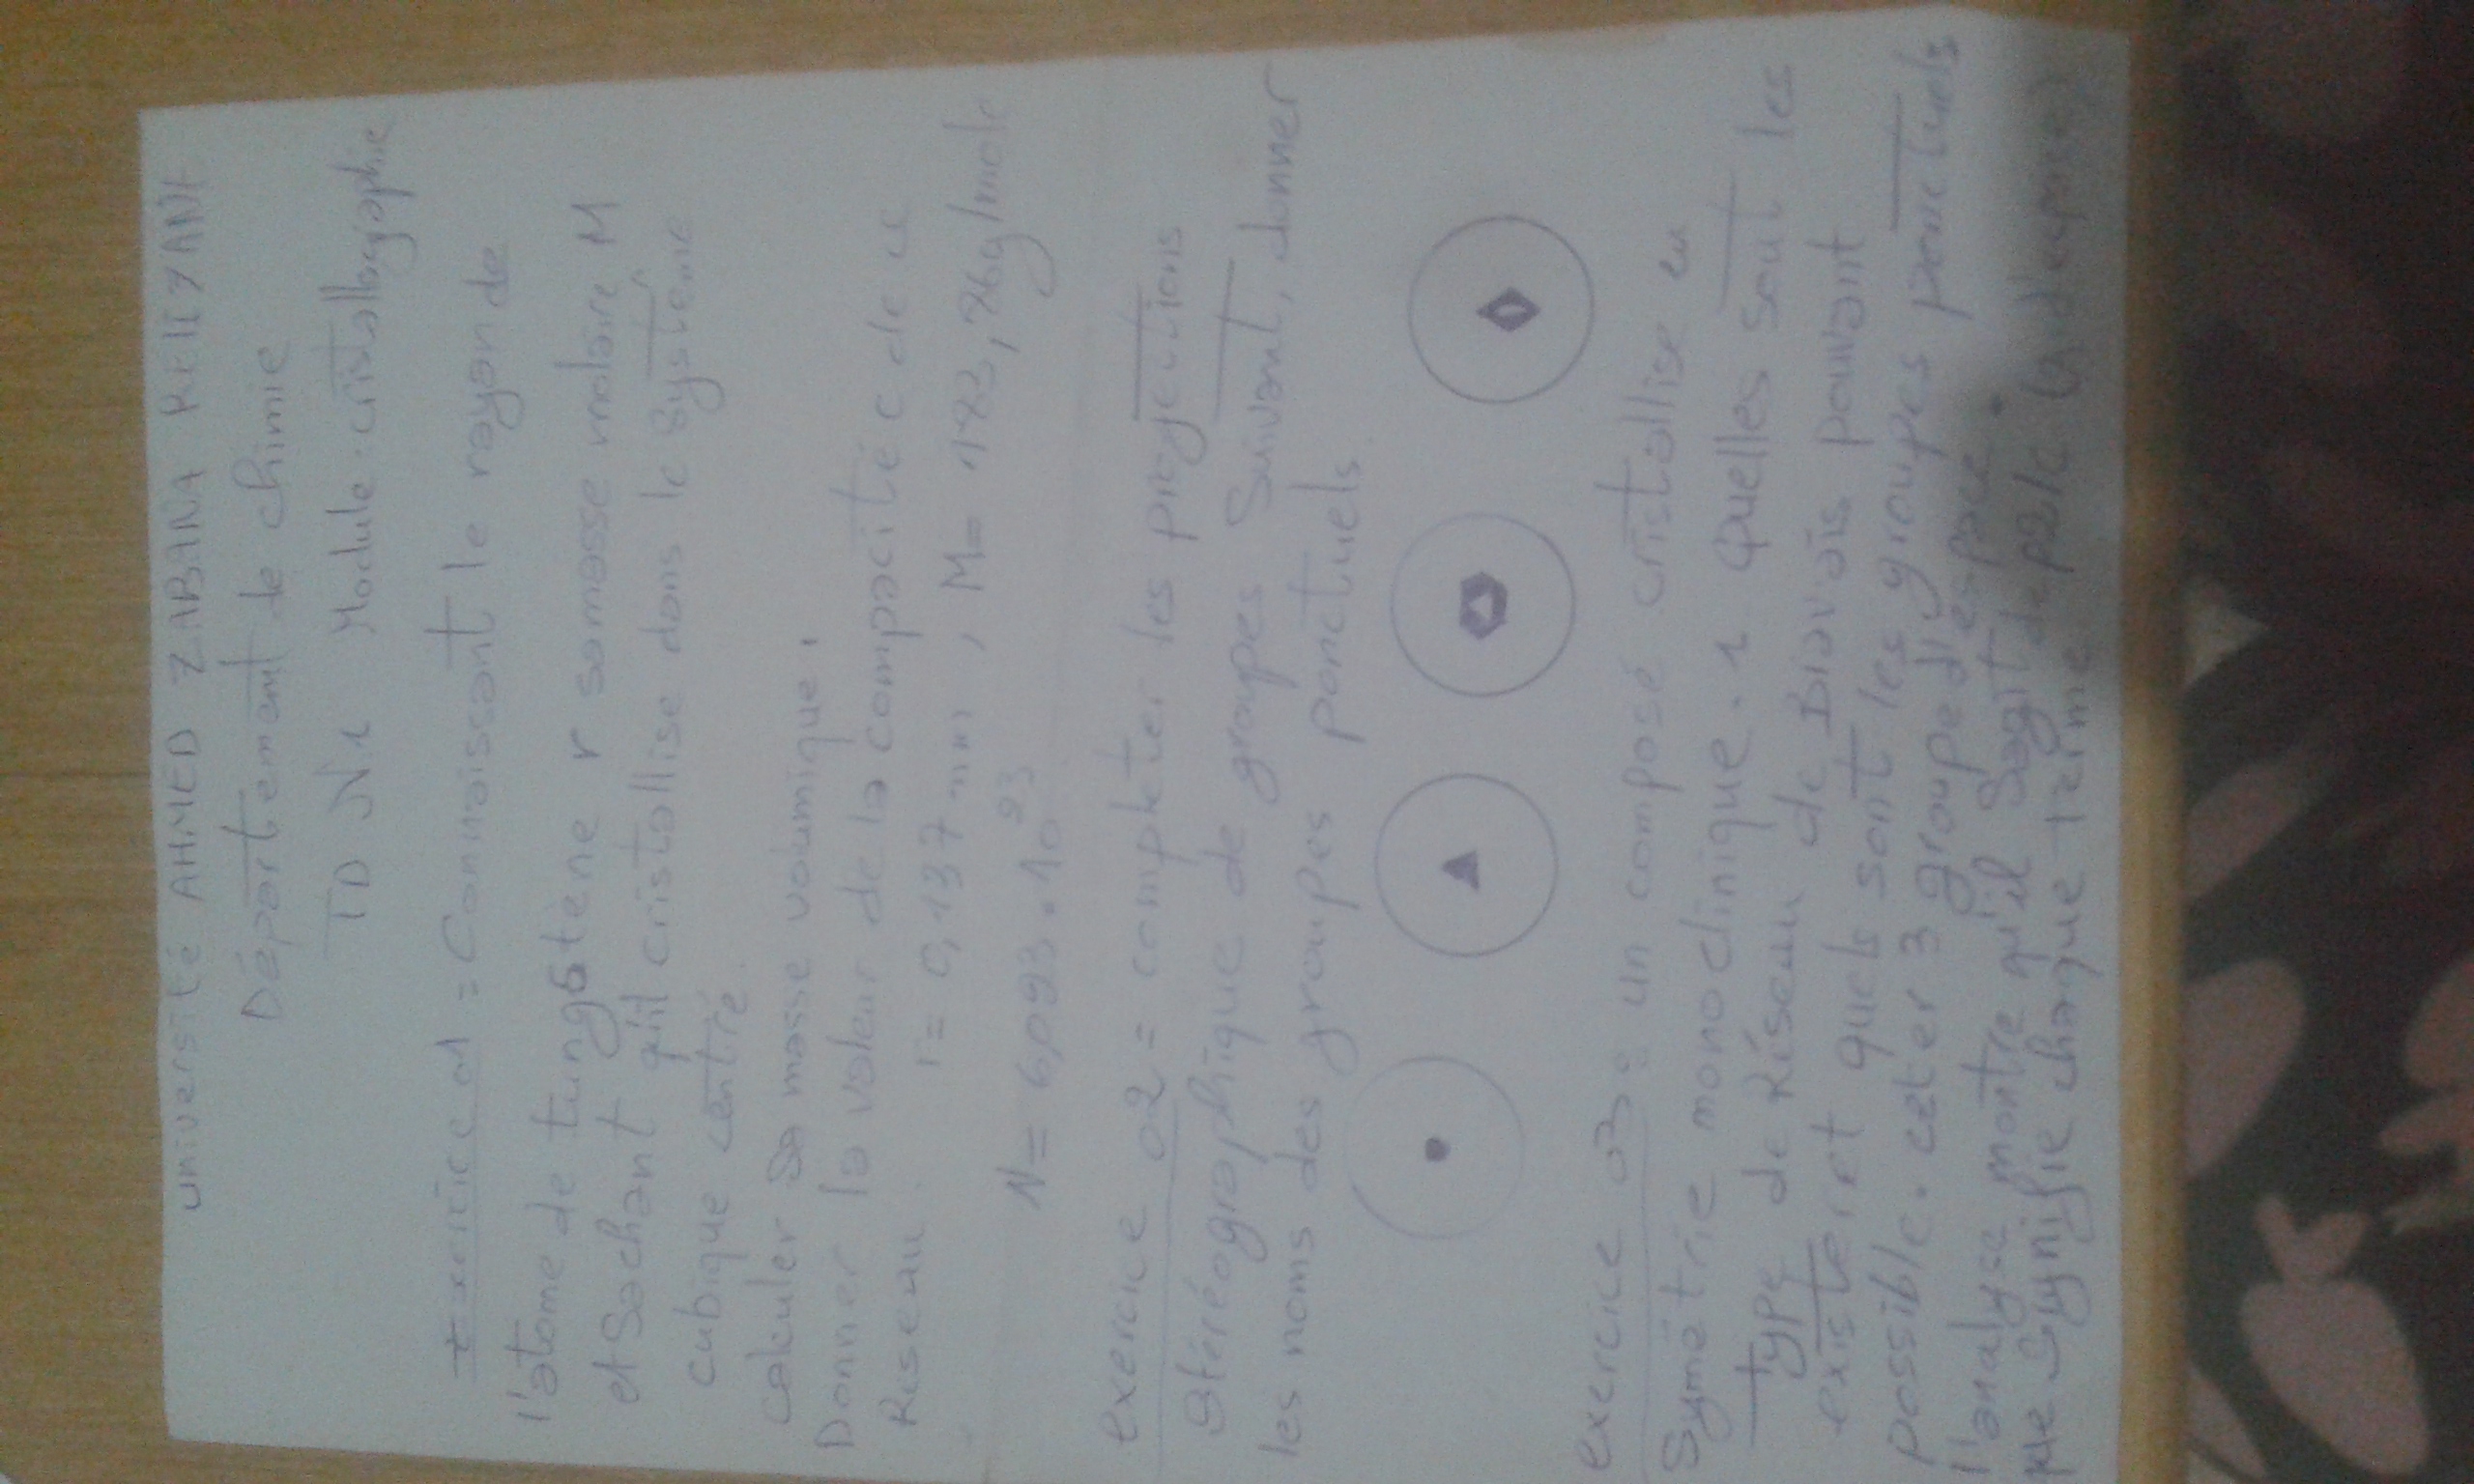 université AHMED ZABANA RELIZANE
Département de chimie
TD N1 Module cristallographie
exercice 01 = Connaissant le rayon de
l'atome de tungstène r samasse molaire M
et Sachant qu'il cristallise dans le système
cubique centré
calculer sa masse voumique,
Donner la valeur de la compacité c de ce
Reseau. r = 0,137 nm, M = 183,86g/mole
N = 6,023.10²³
exercice 02 = completer les projections
stéréographique de groupes Suivant, donner
les noms des groupes ponctuels.
exercice 03 = un composé cristallise en
Symétrie monoclinique. 1 Quelles sont les
type de Réseau de Bravais pouvant
exister et quels sont les groupes ponctuels
possible. citer 3 groupe d'espace.
l'analyse montre qu'il sagit de p2/c
que Signifie chaque terme